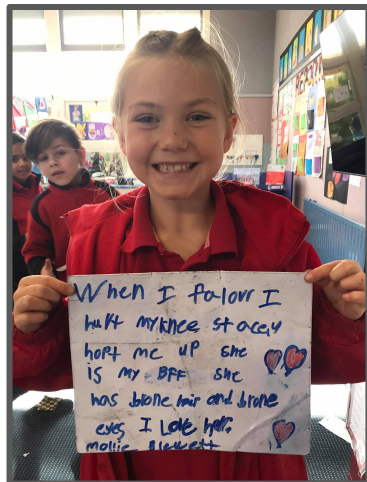 When I falovr I
hurt my knee stacey
hopt me up she
is my BFF she
has brone hair and brone
eyes I Love her.
Mollie Blewett